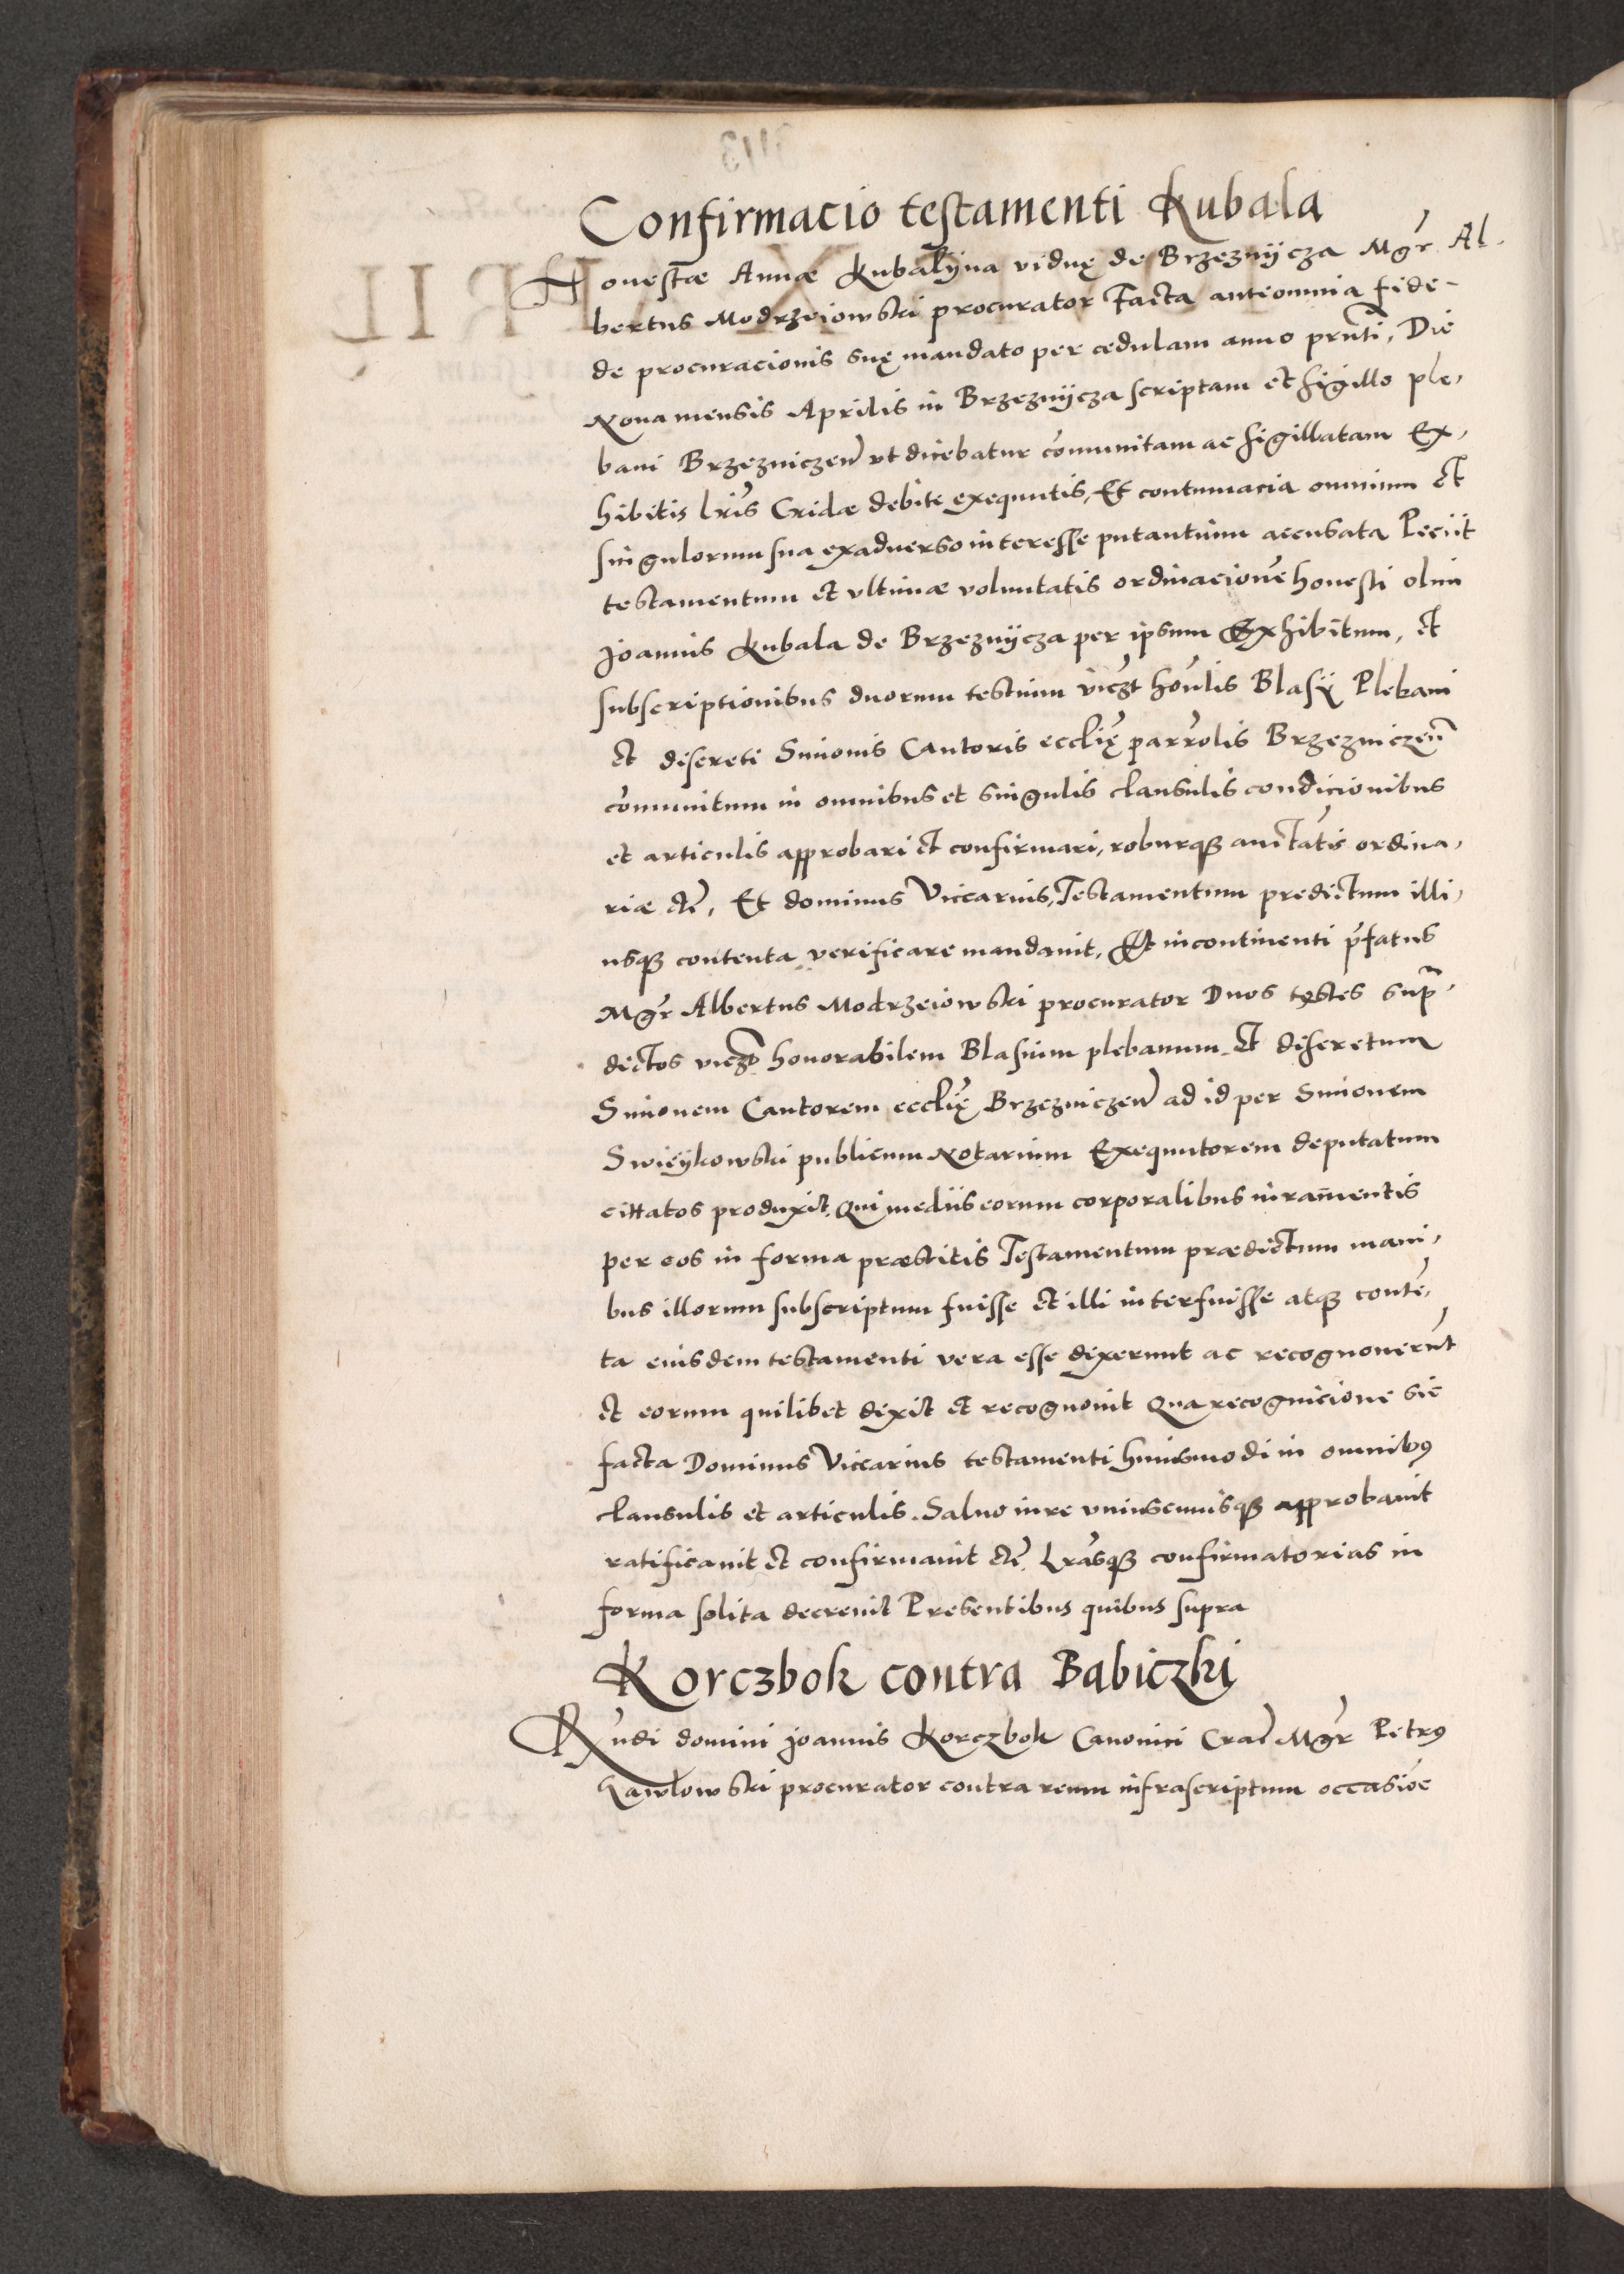 Confirmacio testamenti Kubala
Honestæ Annæ Kubalyna viduę de Brzeznÿcza Mgr̃ Al-
bertus Modrzeiowski procurator Facta ante omnia fide-
de procuracionis suę mandato per cedulam anno prñti, Die
Nona mensis Aprilis in Brzeznÿcza scriptam et sigillo ple-
bani Brzezniczeñ vt dicebatur cõmunitam ac sigillatam Ex-
hibitis lr̃is Cridæ debite exequutis, Et contumacia omnium et
singulorum sua exaduerso interesse putantium accusata Peciit
testamentum et vltimæ voluntatis ordinacionẽ honesti olim
Joannis Kubala de Brzeznÿcza per ipsum Exhibitum, et
subscriptionibus duorum testium viczt hoñlis Blasij Plebani
et discreti Simonis Cantoris ecclię parrolis Brzezniczeñ
cõmunitum in omnibus et singulis clausulis condicionibus
et articulis approbari et confirmari, roburq̃ auctatis ordina-
riæ etc̃, Et dominus Viccarius, Testamentum predictum illi-
usq̃ contenta verificare mandauit, Et incontinenti p̃fatus
Mgr̃ Albertus Modrzeiowski procurator Duos testes sup̃-
dictos viczt honorabilem Blasium plebanum et discretum
Simonem Cantorem ecclię Brzezniczeñ ad id per Simonem
Swieÿkowski publicum Notarium Exequutorem deputatum
cittatos produxit, Qui mediis eorum corporalibus iuramentis
per eos in forma præstitis Testamentum prædictum mani-
bus illorum subscriptum fuisse et illi interfuisse atq̃ contẽ-
ta eiusdem testamenti vera esse dixerunt ac recognouerũt
et eorum quilibet dixit et recognouit Qua recognicione sic
facta Dominus Viccarius testamenti huiusmodi in omnibꝰ
clausulis et articulis. Saluo iure vniuscuiusq̃ approbauit
ratificauit et confirmauit etc̃. Lr̃asq̃ confirmatorias in
forma solita decreuit Presentibus quibus supra
Korczbok contra Babiczki
Rũdi domini Joannis Korczbok Canonici Crac̃ Mgr̃ Petrꝰ
Hawlowski procurator contra reum infrascriptum occasiõe